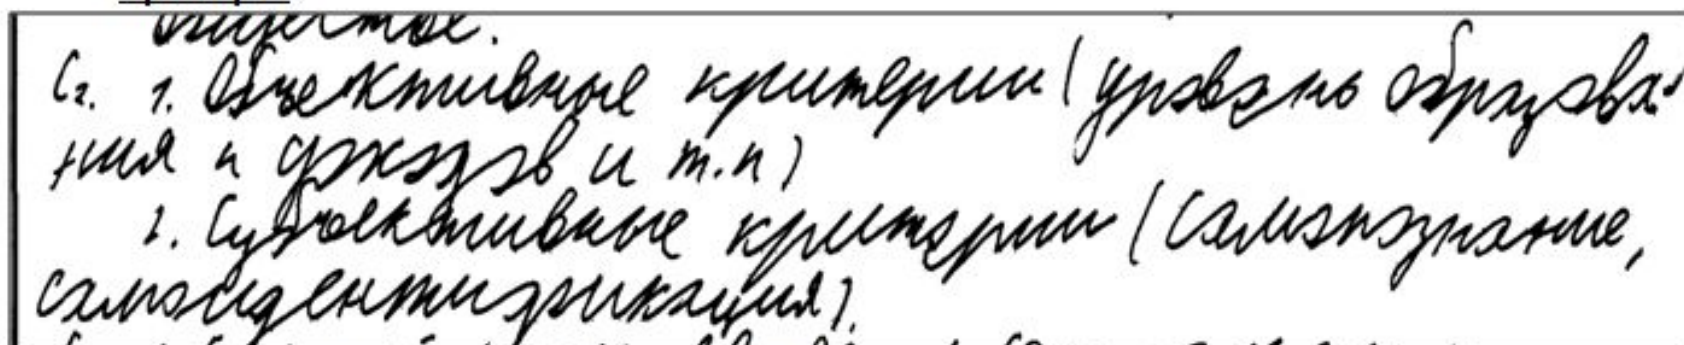 обществе.
С2. 1. Объективные критерии (уровень образова-
ния и доходов и т.п)
2. Субъективные критерии (самопознание,
самоидентификация).